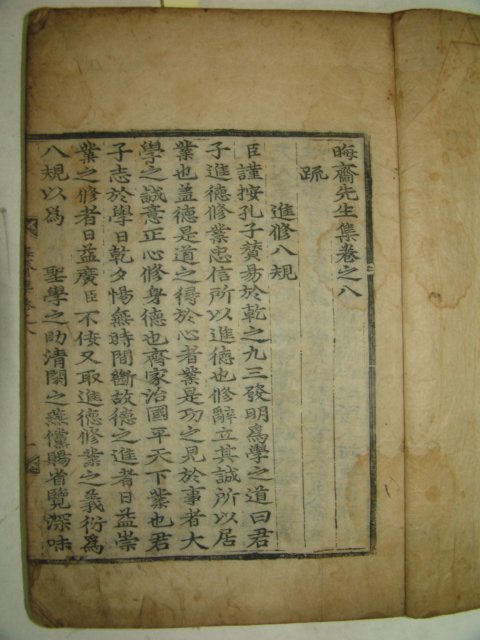 晦齋先生集卷之八
疏
進修八規
臣謹按孔子贊易於乾之九三發明爲學之道曰君
子進德修業忠信所以進德也修辭立其誠所以居
業也盖德是道之得於心者業是功之見於事者大
學之誠意正心修身德也齊家治國平天下業也君
子志於學日乾夕惕無時間斷故德之進者日益崇
業之修者日益廣臣不佞又取進德修業之義衍爲
八規以爲 聖學之助清閑之燕儻賜省覽深味